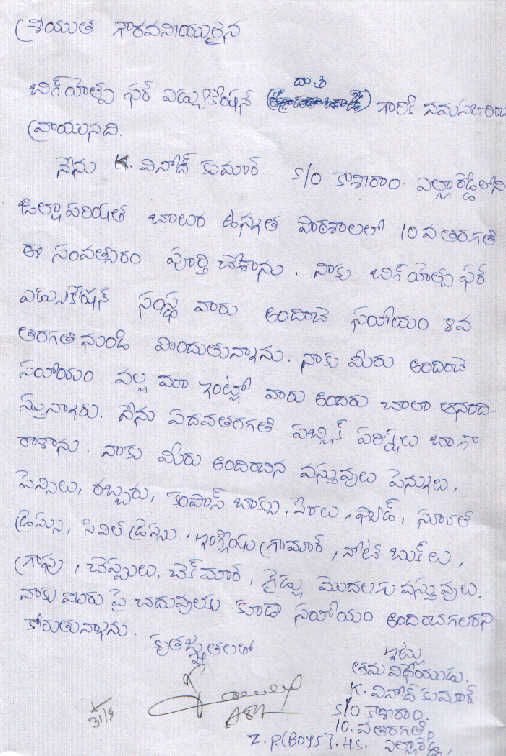 శ్రీయుత గౌరవనీయులైన
బిగ్ హెల్ప్ ఫర్ ఎడ్యుకేషన్ దాత గారికి నమస్కరించి
వ్రాయునది.
నేను K. వినోద్ కుమార్ S/O కాశిరాం ఎల్లారెడ్డిలోని
జిల్లా పరిషత్ బాలుర ఉన్నత పాఠశాలలో 10వ తరగతి
ఈ సంవత్సరం పూర్తి చేశాను. నాకు బిగ్ హెల్ప్ ఫర్
ఎడ్యుకేషన్ సంస్థ వారు అందించే సహాయం 8వ
తరగతి నుండి పొందుతున్నాను. నాకు మీరు అందించే
సహాయం వల్ల మా ఇంట్లో వారు అందరు చాలా ఆనంది
స్తున్నారు. నేను పదవతరగతి పబ్లిక్ పరీక్షలు బాగా
రాశాను. నాకు మీరు అందించిన వస్తువులు పెన్నులు,
పెన్సిలు, రబ్బరు, కంపాస్ బాక్సు, పేరలు, ప్యాడ్, స్కూల్
డ్రెస్సు, సివిల్ డ్రెస్సు, ఇంగ్లీషు గ్రామార్, నోట్ బుక్‌లు,
గ్రాఫు, చెప్పులు, చెక్‌మార్, గైడ్సు మొదలగు వస్తువులు.
నాకు మీరు పై చదువులకు కూడా సహాయం అందించగలరని
కోరుతున్నాను.
కృతజ్ఞతలతో
ఇట్లు
తమ విధేయుడు.
K. వినోద్ కుమార్
S/O కాశిరాం
10వ తరగతి
Z.P(Boys).H.S. ఎల్లారెడ్డి
31/8